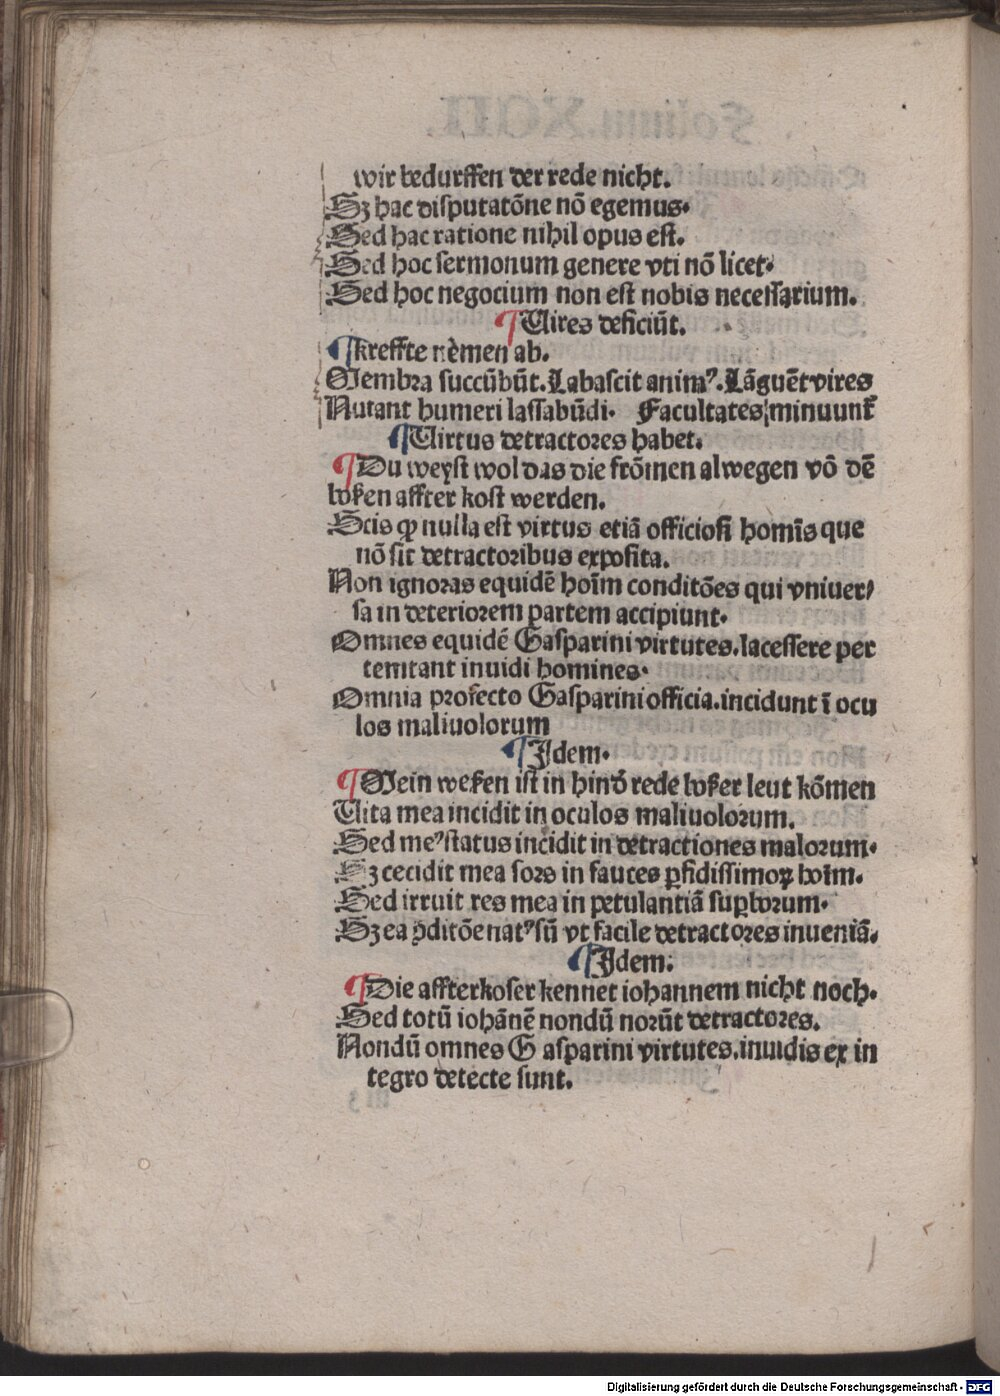 wir bedurffen der rede nicht.
Sꝫ hac disputatõne nõ egemus.
Sed hac ratione nihil opus est.
Sed hoc sermonum genere vti nõ licet.
Sed hoc negocium non est nobis necessarium.
¶ Uires deficiũt.
¶ kreffte nèmen ab.
Membra succũbũt. Labascit animꝰ. Lãguẽt vires
Nutant humeri lassabũdi. Facultates minuunt᷑
¶ Uirtus detractores habet.
¶ Du weyst wol das die frõmen alwegen võ dẽ
bosen affter kost werden.
Scis ꝙ nulla est virtus etiã officiosi homĩs que
nõ sit detractoribus exposita.
Non ignoras equidẽ hoĩm conditões qui vniuer/
sa in deteriorem partem accipiunt.
Omnes equidẽ Gasparini virtutes. lacessere per
temtant inuidi homines.
Omnia profecto Gasparini officia. incidunt ĩ ocu
los maliuolorum
¶ Idem.
¶ Mein wesen ist in hind̕ rede boser leut kõmen
Uita mea incidit in oculos maliuolorum.
Sed meꝰ status incidit in detractiones malorum.
Sꝫ cecidit mea sors in fauces ꝑfidissimoꝝ hoĩm.
Sed irruit res mea in petulantiã suꝑborum.
Sꝫ ea ꝯditõe natꝰ sũ vt facile detractores inueniã.
¶ Idem.
¶ Die affterkoser kennet iohannem nicht noch.
Sed totũ iohãnẽ nondũ norũt detractores.
Nondũ omnes Gasparini virtutes. inuidis ex in
tegro detecte sunt.
Digitalisierung gefördert durch die Deutsche Forschungsgemeinschaft - DFG